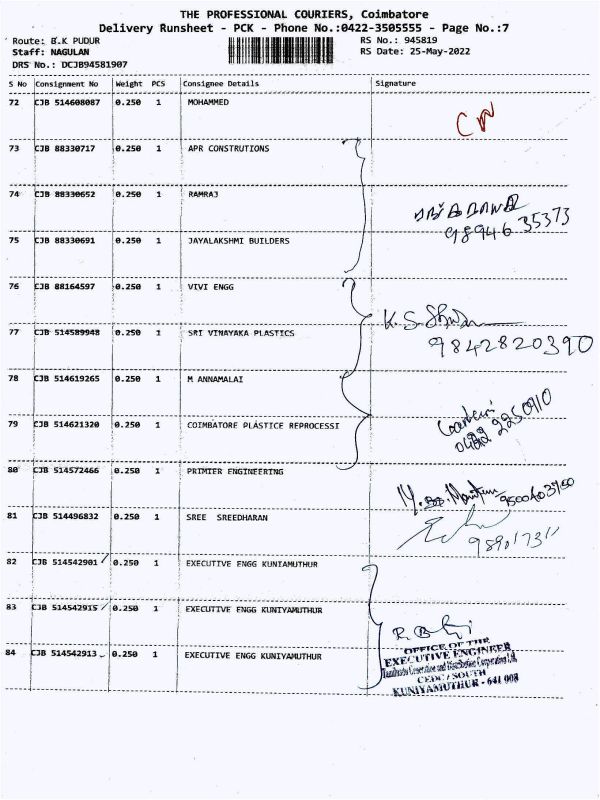 THE PROFESSIONAL COURIERS, Coimbatore
Delivery Runsheet - PCK - Phone No.:0422-3505555 - Page No.:7
Route: B.K PUDUR
RS No.: 945819
Staff: NAGULAN
RS Date: 25-May-2022
DRS No.: DCJB94581907
S No Consignment No Weight PCS Consignee Details Signature
72 CJB 514608087 0.250 1 MOHAMMED
73 CJB 88330717 0.250 1 APR CONSTRUTIONS
74 CJB 88330652 0.250 1 RAMRAJ
98946 35373
75 CJB 88330691 0.250 1 JAYALAKSHMI BUILDERS
76 CJB 88164597 0.250 1 VIVI ENGG
K.S.
77 CJB 514589948 0.250 1 SRI VINAYAKA PLASTICS
9842820390
78 CJB 514619265 0.250 1 M ANNAMALAI
79 CJB 514621320 0.250 1 COIMBATORE PLASTICE REPROCESSI
80 CJB 514572466 0.250 1 PRIMIER ENGINEERING
81 CJB 514496832 0.250 1 SREE SREEDHARAN
82 CJB 514542901 0.250 1 EXECUTIVE ENGG KUNIAMUTHUR
83 CJB 514542915 0.250 1 EXECUTIVE ENGG KUNIYAMUTHUR
84 CJB 514542913 0.250 1 EXECUTIVE ENGG KUNIYAMUTHUR
OFFICE OF THE
EXECUTIVE ENGINEER
Tamilnadu Generation and Distribution Corporation Ltd
CEDC / SOUTH
KUNIYAMUTHUR - 641 008